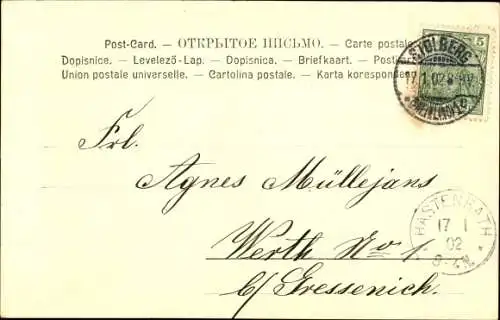 Post-Card. — ОТКРЫТОЕ ПИСЬМО. — Carte postale.
Dopisnice. — Levelező-Lap. — Dopisnica. — Briefkaart. —
Union postale universelle. — Cartolina postale. — Karta
5
STOLBERG
17.1.02
(RHEINLAND)
Frl.
Agnes Müllejans
Werth No 1
b/Gressenich.
HASTENRATH
17 1
02